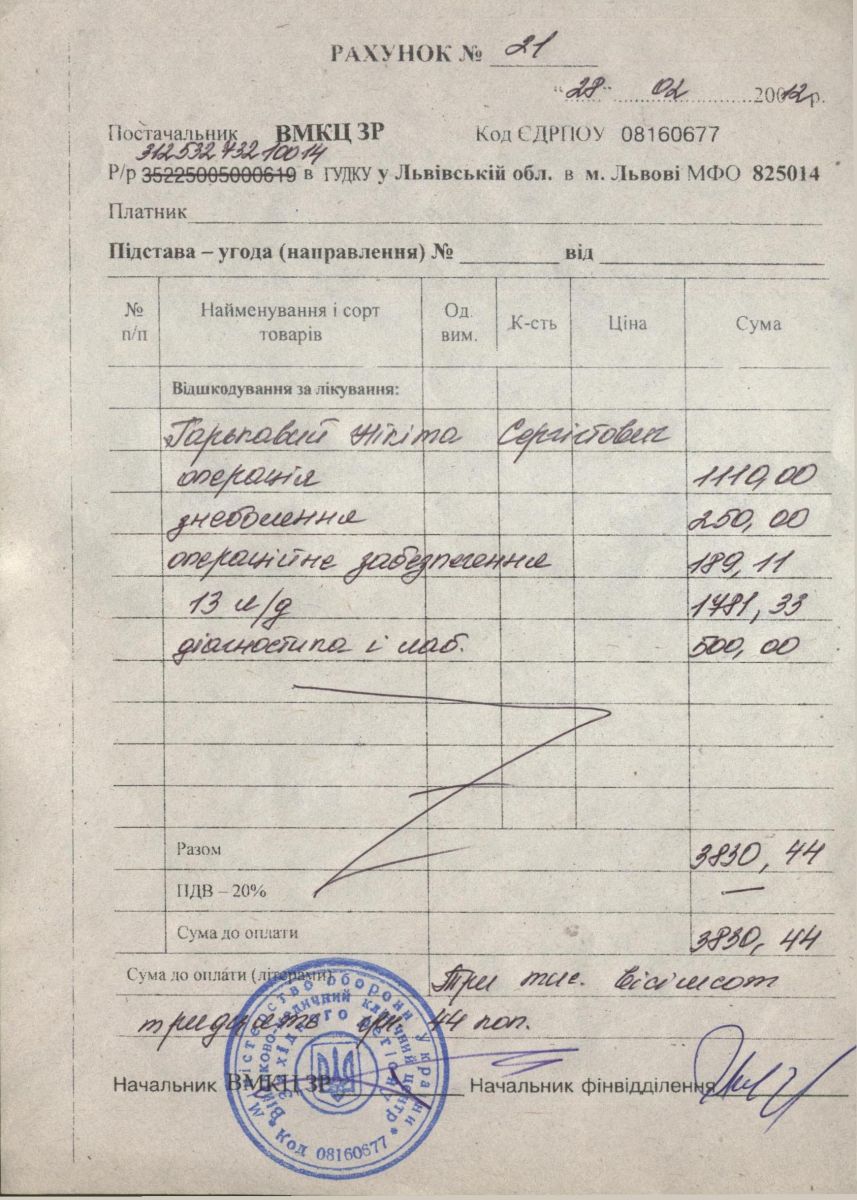 РАХУНОК № 21
"28" 02 2012р.
Постачальник ВМКЦ ЗР Код ЄДРПОУ 08160677
31253273210014
Р/р 35225005000619 в ГУДКУ у Львівській обл. в м. Львові МФО 825014
Платник
Підстава – угода (направлення) № від
№ п/п Найменування і сорт товарів Од. вим. К-сть Ціна Сума
Відшкодування за лікування:
Гарькавий Нікіта Сергійович
операція 1110,00
знеболення 250,00
операційне забезпечення 189,11
13 л/д 1781,33
діагностика і лаб. 500,00
Разом 3830,44
ПДВ – 20% —
Сума до оплати 3830,44
Сума до оплати (літерами) Три тис. вісімсот
тридцять грн 44 коп.
Начальник ВМКЦ ЗР Начальник фінвідділення
Міністерство оборони України
Військово-медичний клінічний центр
Західного регіону
* Код 08160677 *